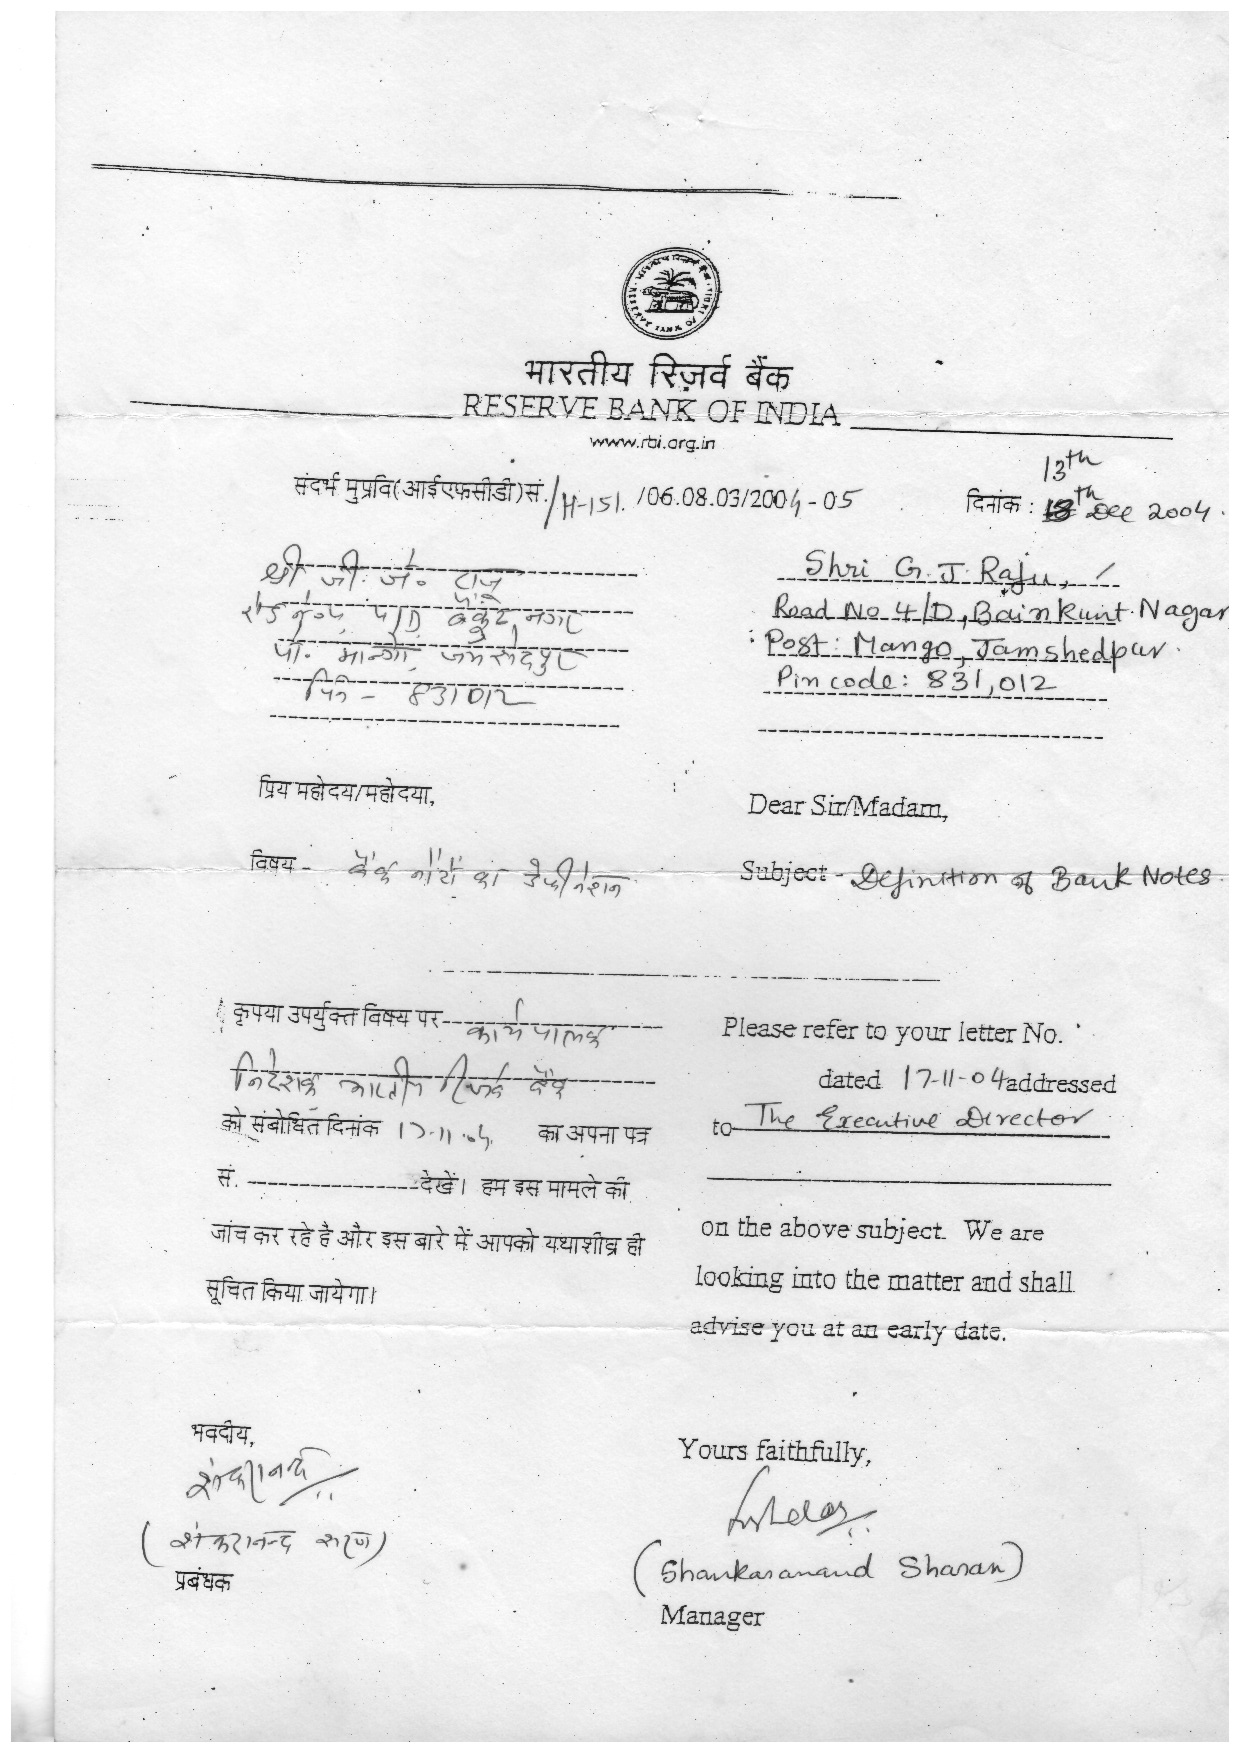 भारतीय रिज़र्व बैंक
RESERVE BANK OF INDIA
www.rbi.org.in
संदर्भ मुप्रवि(आईएफसीडी)सं./H-151. /06.08.03/2004-05
13th
दिनांक : 13th Dec 2004.
श्री जी. जे. राजु
4/D बैंकुंट नगर
पो. मान्गो, जमशेदपुर
पिन - 831012
Shri G.J. Raju,
Road No 4/D, Bainkunt Nagar
Post: Mango, Jamshedpur.
Pin code: 831,012
प्रिय महोदय/महोदया,
Dear Sir/Madam,
विषय - बैंक नोटों का डेफीनेशन
Subject - Definition of Bank Notes.
कृपया उपर्युक्त विषय पर कार्यपालक
निदेशक भारतीय रिजर्व बैंक
को संबोधित दिनांक 17-11-04. का अपना पत्र
सं. देखें। हम इस मामले की
जांच कर रहे है और इस बारे में आपको यथाशीघ्र ही
सूचित किया जायेगा।
Please refer to your letter No.
dated 17-11-04 addressed
to The Executive Director
on the above subject. We are
looking into the matter and shall
advise you at an early date.
भवदीय,
शंकरानन्द
(शंकरानन्द सरण)
प्रबंधक
Yours faithfully,
(Shankaranand Sharan)
Manager